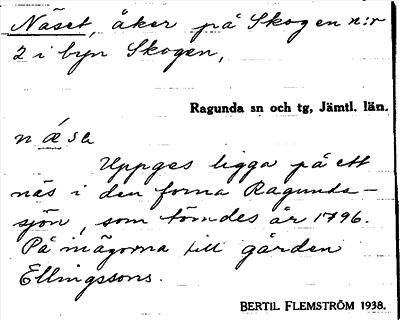 Näset, åker på Skogen n:r
2 i byn Skogen,
Ragunda sn och tg, Jämtl. län.
næse
Uppges ligga på ett
näs i den forna Ragunda-
sjön, som tömdes år 1796.
På mågorna till gården
Ellingssons.
BERTIL FLEMSTRÖM 1938.